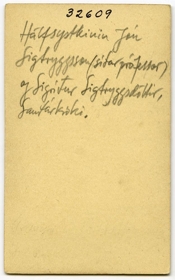 32609
Hálfsystkinin Jón
Sigtryggsson (síðar prófessor)
og Sigríður Sigtryggsdóttir,
Sauðárkróki.